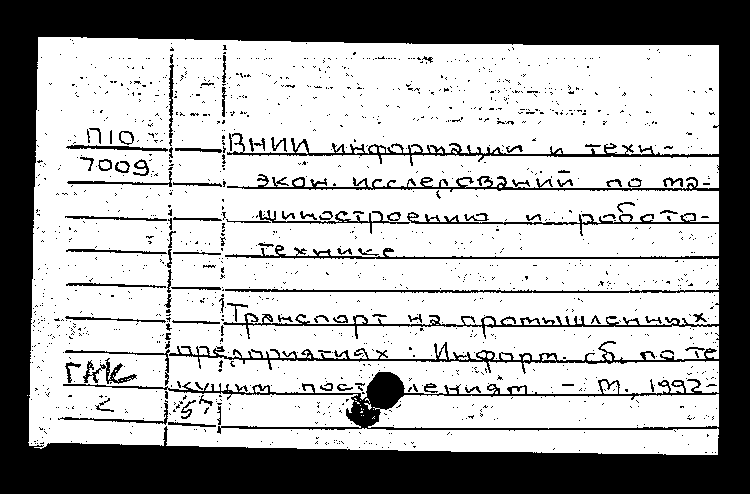 П10
7009
ВНИИ информации и техн.-
экон. исследований по ма-
шиностроению и робото-
технике
Транспорт на промышленных
предприятиях : Информ. сб. по те
кущим пост лениям. - М., 1992-
ГАК
2 157